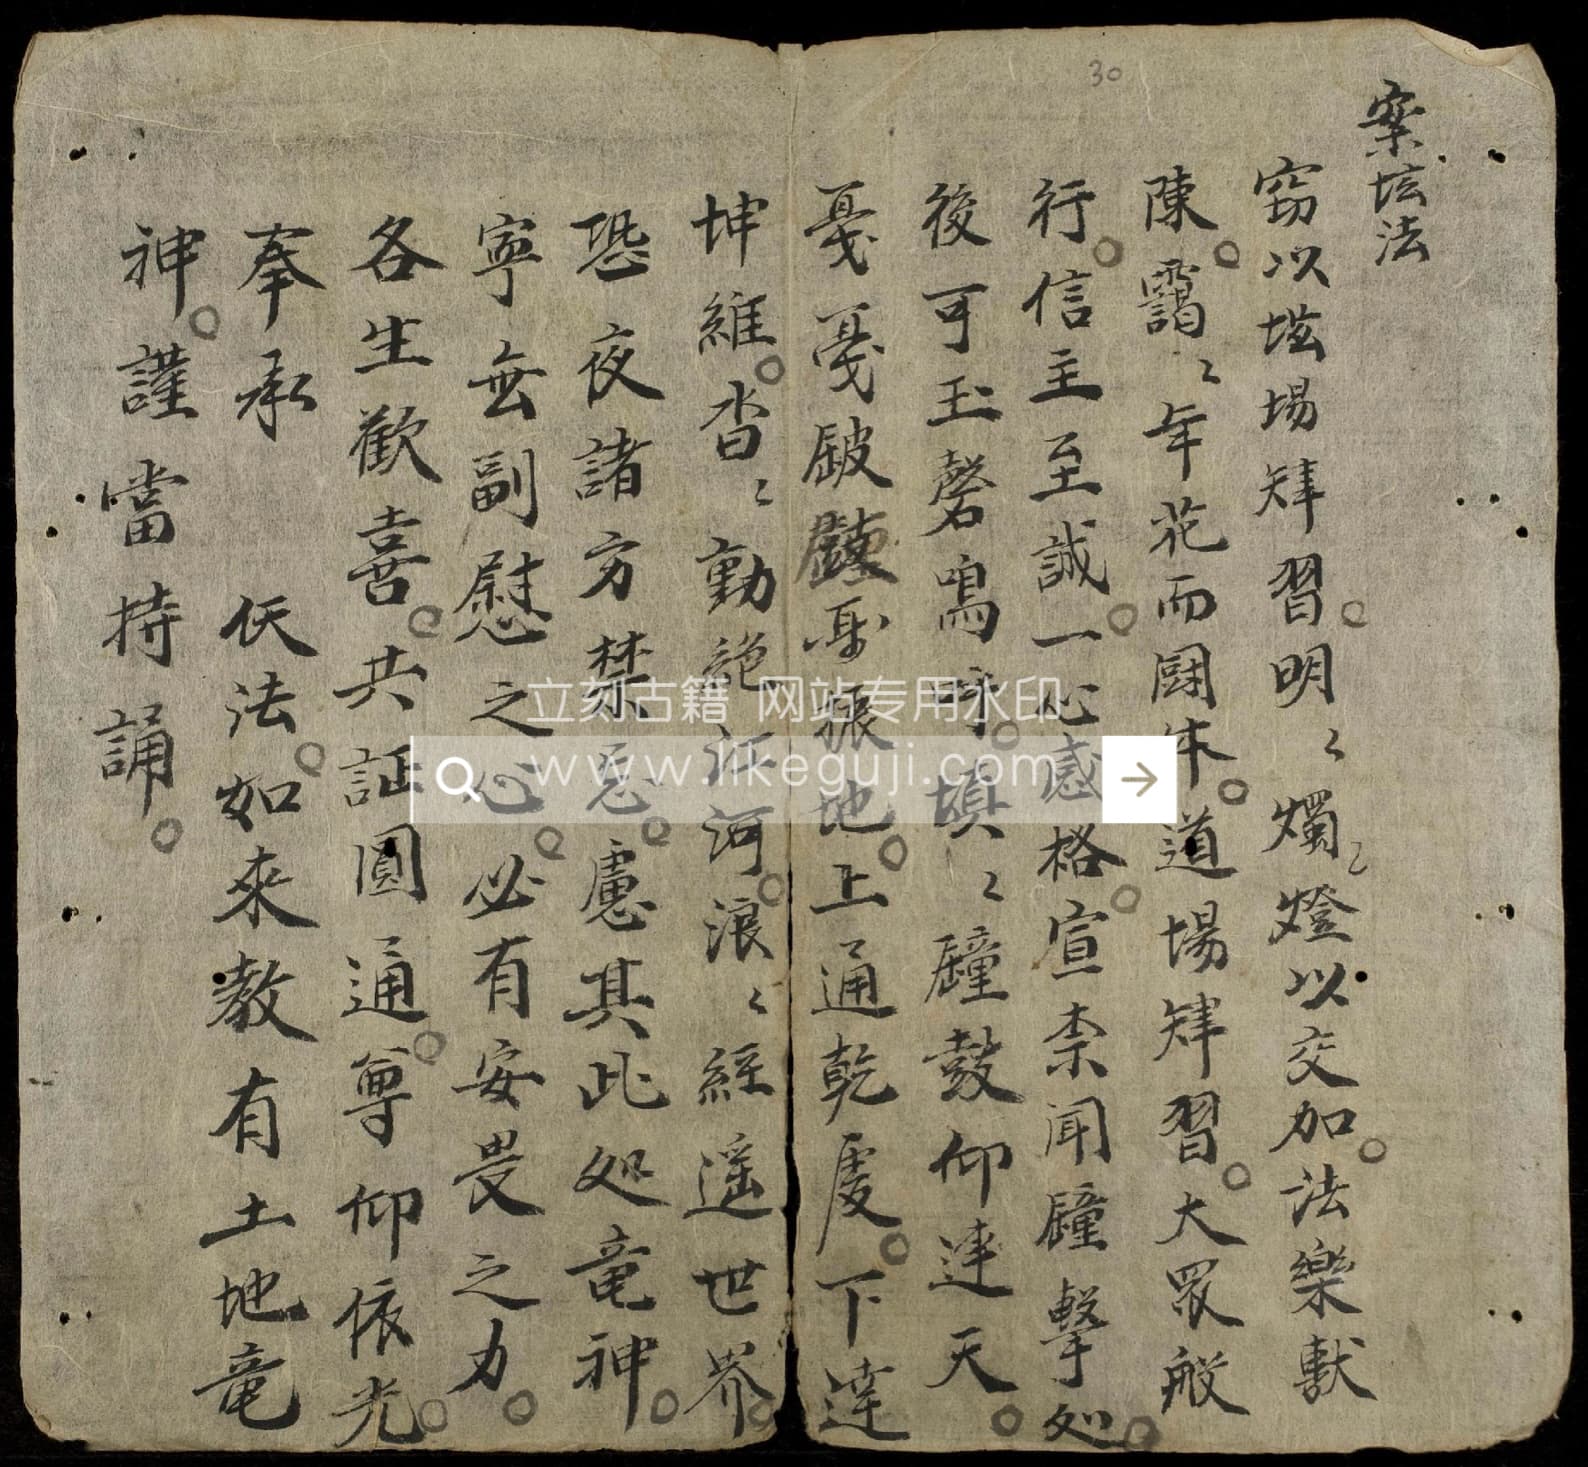 30
案坛法
窃以坛場肄習。明〻燭〻燈以交加。法樂献
陳。靄〻年花而闘。道場肄習。大眾般
行。信主至誠。一心感格。宣柰闻鐘擊処。
後可玉磬鳴時。填〻鐘鼓仰連天。
戛戛鈸振地。上通乾處。下達
坤維。沓〻動絶江河。浪〻經遥世界。
恐夜諸方禁忌。慮其此処竜神。
寧無副慰之心。必有安畏之力。
各生歡喜。共証圓通。尊仰依光。
奉承 仸法。如來教有土地竜
神。謹當持誦。
立刻古籍 网站专用水印
www.likeguji.com